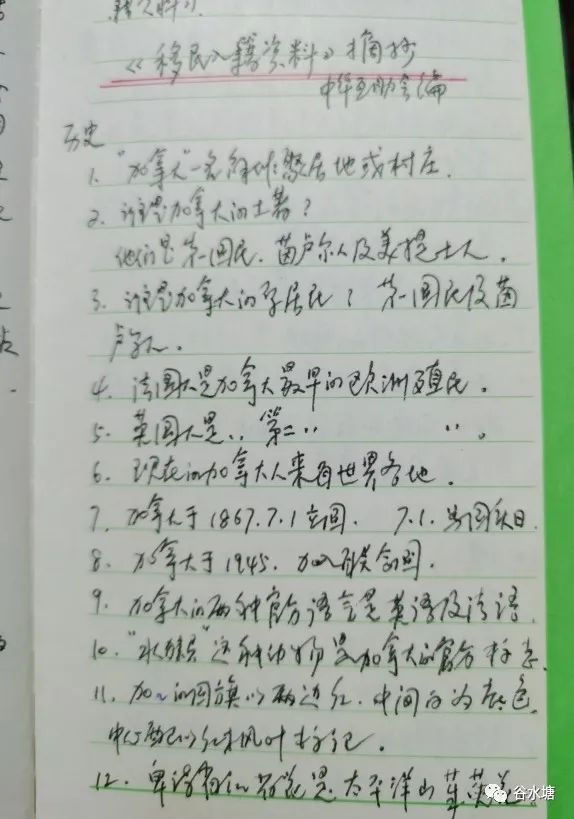 籍资料》
《移民入籍资料》摘抄
中华互助会编
历史
1. "加拿大"一名解作聚居地或村庄.
2. 谁是加拿大的土著?
他们是第一国民. 茵卢尔人及美提士人.
3. 谁是加拿大的原居民? 第一国民及茵
卢尔人.
4. 法国人是加拿大最早的欧洲殖民.
5. 英国人是〃 第二〃 〃.
6. 现在的加拿大人来自世界各地.
7. 加拿大于1867.7.1立国. 7.1.为国庆日.
8. 加拿大于1945. 加入联合国.
9. 加拿大的两种官方语言是英语及法语.
10. "水獭"这种动物是加拿大的官方标志.
11. 加〃的国旗以两边红. 中间白为底色.
中心配以红枫叶标记.
12. 卑诗省的省花是太平洋山茱萸花
谷水塘